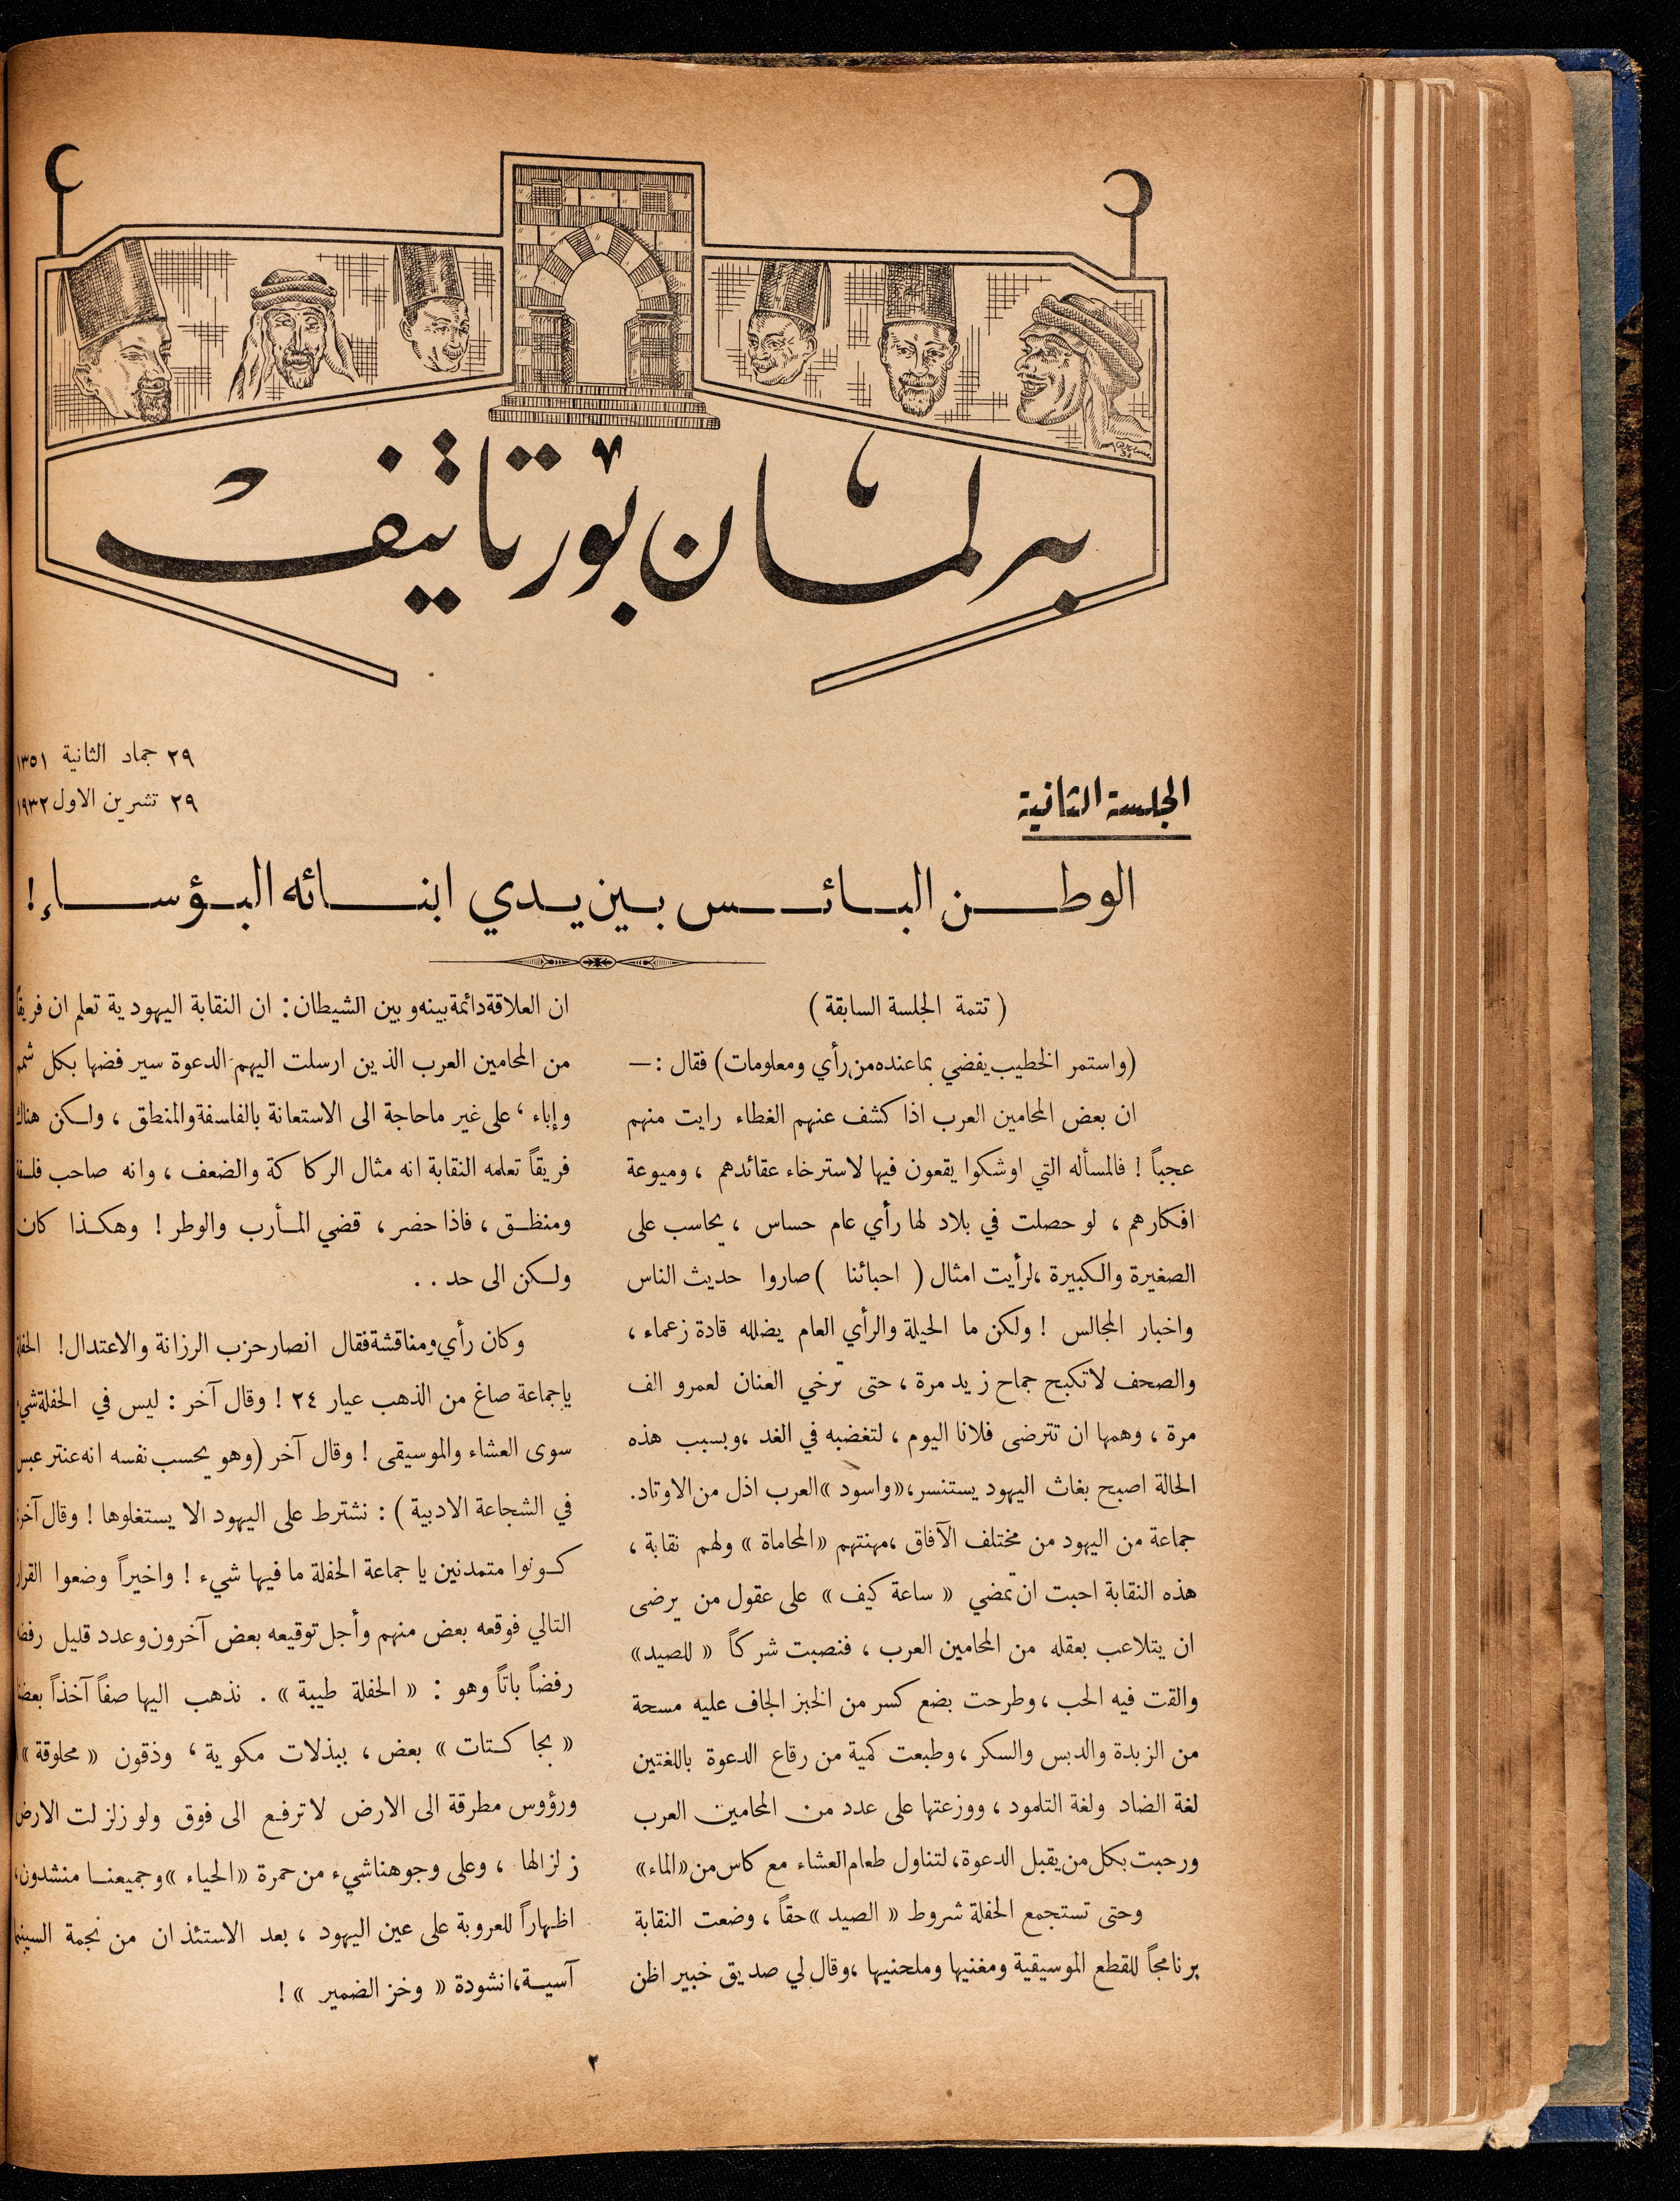 برلمان بورتاتيف
٢٩ جماد الثانية ١٣٥١
٢٩ تشرين الاول ١٩٣٢
الجلسة الثانية
الوطن البائس بين يدي ابنائه البؤساء!
( تتمة الجلسة السابقة )
(واستمر الخطيب يفضي بما عنده من رأي ومعلومات) فقال : —
ان بعض المحامين العرب اذا كشف عنهم الغطاء رايت منهم
عجباً ! فالمسأله التي اوشكوا يقعون فيها لاسترخاء عقائدهم ، وميوعة
افكارهم ، لو حصلت في بلاد لها رأي عام حساس ، يحاسب على
الصغيرة والكبيرة ،لرأيت امثال ( احبائنا ) صاروا حديث الناس
واخبار المجالس ! ولكن ما الحيلة والرأي العام يضلله قادة زعماء ،
والصحف لا تكبح جماح زيد مرة ، حتى ترخي العنان لعمرو الف
مرة ، وهمها ان تترضى فلانا اليوم ، لتغضبه في الغد ،وبسبب هذه
الحالة اصبح بغاث اليهود يستنسر،«واسود» العرب اذل من الاوتاد.
جماعة من اليهود من مختلف الآفاق ،مهنتهم «المحاماة» ولهم نقابة ،
هذه النقابة احبت ان تمضي « ساعة كيف » على عقول من يرضى
ان يتلاعب بعقله من المحامين العرب ، فنصبت شركاً « للصيد»
والقت فيه الحب ، وطرحت بضع كسر من الخبز الجاف عليه مسحة
من الزبدة والدبس والسكر ، وطبعت كمية من رقاع الدعوة باللغتين
لغة الضاد ولغة التلمود ، ووزعتها على عدد من المحامين العرب
ورحبت بكل من يقبل الدعوة،لتناول طعام العشاء مع كاس من «الماء»
وحتى تستجمع الحفلة شروط « الصيد » حقاً ، وضعت النقابة
برنامجاً للقطع الموسيقية ومغنيها وملحنيها ،وقال لي صديق خبير اظن
ان العلاقة دائمة بينه وبين الشيطان: ان النقابة اليهودية تعلم ان فريقاً
من المحامين العرب الذين ارسلت اليهم الدعوة سيرفضها بكل شمم
وإباء ، على غير ما حاجة الى الاستعانة بالفاسفة والمنطق ، ولكن هناك
فريقاً تعلمه النقابة انه مثال الركاكة والضعف ، وانه صاحب فلسفة
ومنطق ، فاذا حضر ، قضي المأرب والوطر ! وهكذا كان
ولكن الى حد . .
وكان رأي ومناقشة فقال انصار حزب الرزانة والاعتدال! الحفلة
ياجماعة صاغ من الذهب عيار ٢٤ ! وقال آخر : ليس في الحفلة شيء
سوى العشاء والموسيقى ! وقال آخر (وهو يحسب نفسه انه عنتر عبس
في الشجاعة الادبية ) : نشترط على اليهود الا يستغلوها ! وقال آخر:
كونوا متمدنين يا جماعة الحفلة ما فيها شيء ! واخيراً وضعوا القرار
التالي فوقعه بعض منهم وأجل توقيعه بعض آخرون وعدد قليل رفضه
رفضاً باتاً وهو : « الحفلة طيبة » . نذهب اليها صفاً آخذاً بعضنا
« بجاكتات » بعض ، ببذلات مكوية ، وذقون « محلوقة »
ورؤوس مطرقة الى الارض لا ترفع الى فوق ولو زلزلت الارض
زلزالها ، وعلى وجوهنا شيء من حمرة «الحياء » وجميعنا منشدون،
اظهاراً للعروبة على عين اليهود ، بعد الاستئذان من نجمة السينما
آسية،انشودة « وخز الضمير » !
٢